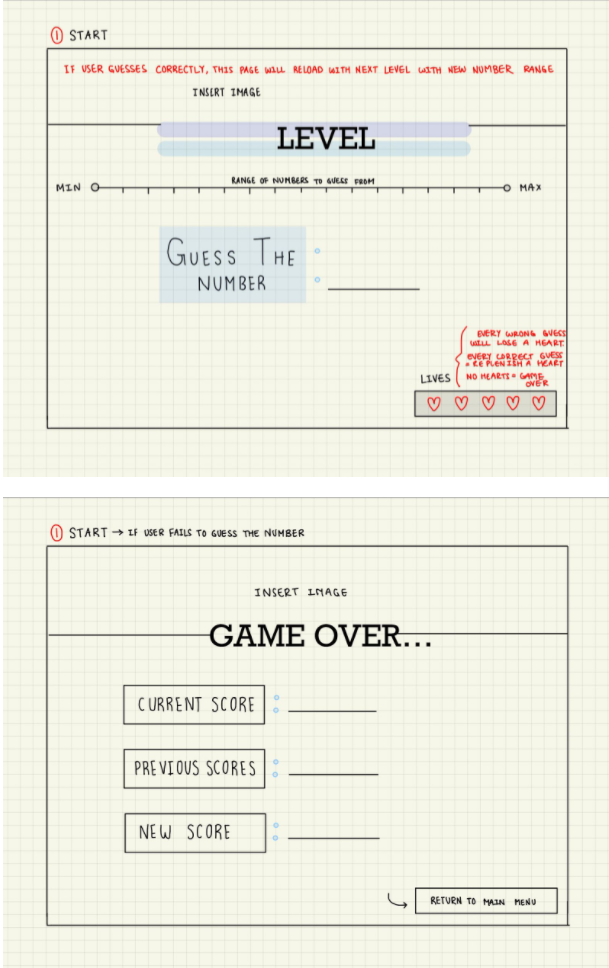 ① START
IF USER GUESSES CORRECTLY, THIS PAGE WILL RELOAD WITH NEXT LEVEL WITH NEW NUMBER RANGE
INSERT IMAGE
LEVEL
RANGE OF NUMBERS TO GUESS FROM
MIN MAX
GUESS THE
NUMBER :
EVERY WRONG GUESS
WILL LOSE A HEART
EVERY CORRECT GUESS
= REPLENISH A HEART
NO HEARTS = GAME
OVER
LIVES
① START → IF USER FAILS TO GUESS THE NUMBER
INSERT IMAGE
GAME OVER...
CURRENT SCORE :
PREVIOUS SCORES :
NEW SCORE :
RETURN TO MAIN MENU